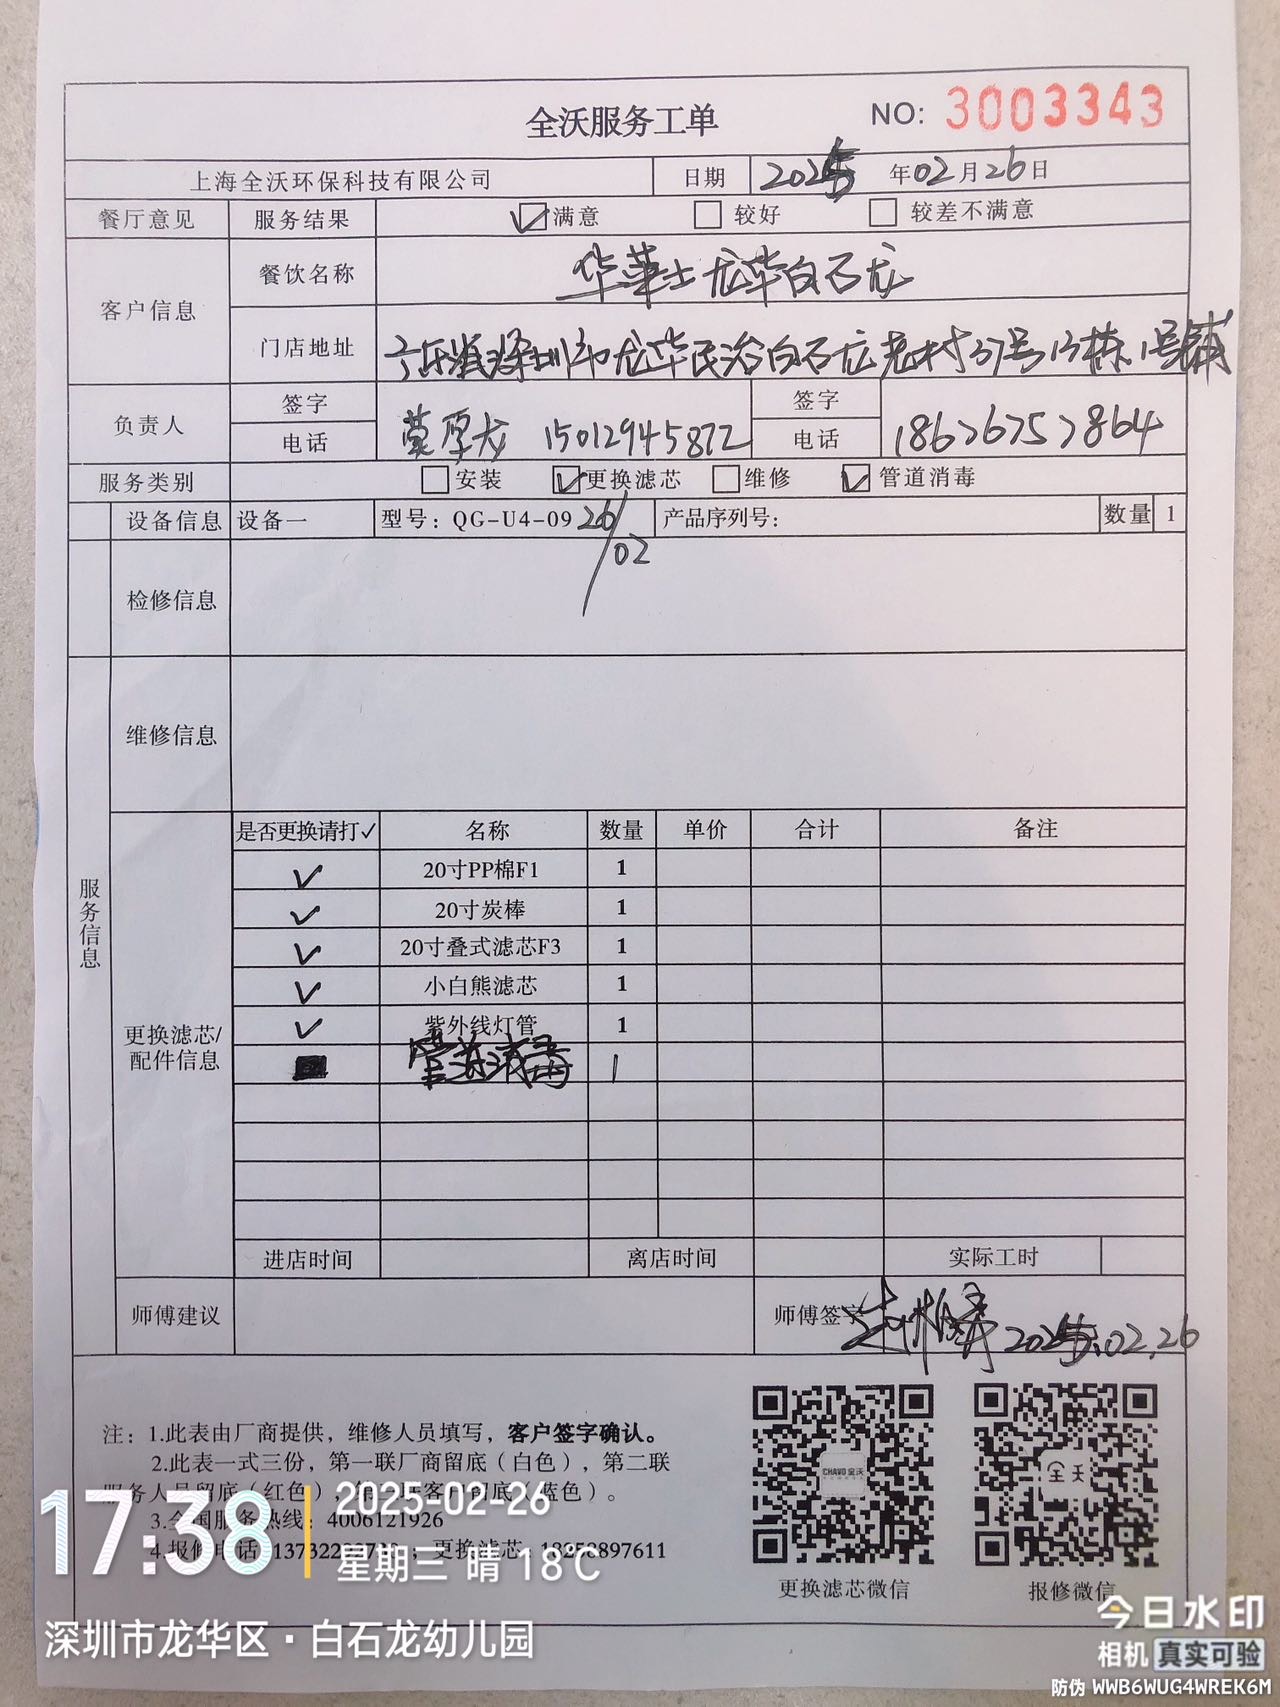 全沃服务工单 NO: 3003343
上海全沃环保科技有限公司 日期 2025 年02月26日
餐厅意见 服务结果 满意 较好 较差不满意
客户信息 餐饮名称 华莱士龙华白石龙
门店地址 广东深圳市龙华民治白石龙老村37号13栋1号铺
负责人 签字 签字
电话 莫厚龙 15012945872 电话 18676752864
服务类别 安装 更换滤芯 维修 管道消毒
设备信息 设备一 型号：QG-U4-09 26/02 产品序列号： 数量 1
检修信息
维修信息
服务信息
更换滤芯/配件信息
是否更换请打✓ 名称 数量 单价 合计 备注
✓ 20寸PP棉F1 1
✓ 20寸炭棒 1
✓ 20寸叠式滤芯F3 1
✓ 小白熊滤芯 1
✓ 紫外线灯管 1
管道消毒 1
进店时间 离店时间 实际工时
师傅建议 师傅签字 2025.02.26
注：1.此表由厂商提供，维修人员填写，客户签字确认。
2.此表一式三份，第一联厂商留底（白色），第二联
服务人员留底（红色），客户留底（蓝色）。
3.全国服务热线：4006121926
4.报修电话 更换滤芯：18258897611
更换滤芯微信 报修微信
CHAVO全沃
全沃
17:38
2025-02-26
星期三 晴 18℃
深圳市龙华区·白石龙幼儿园
今日水印
相机 真实可验
防伪 WWB6WUG4WREK6M